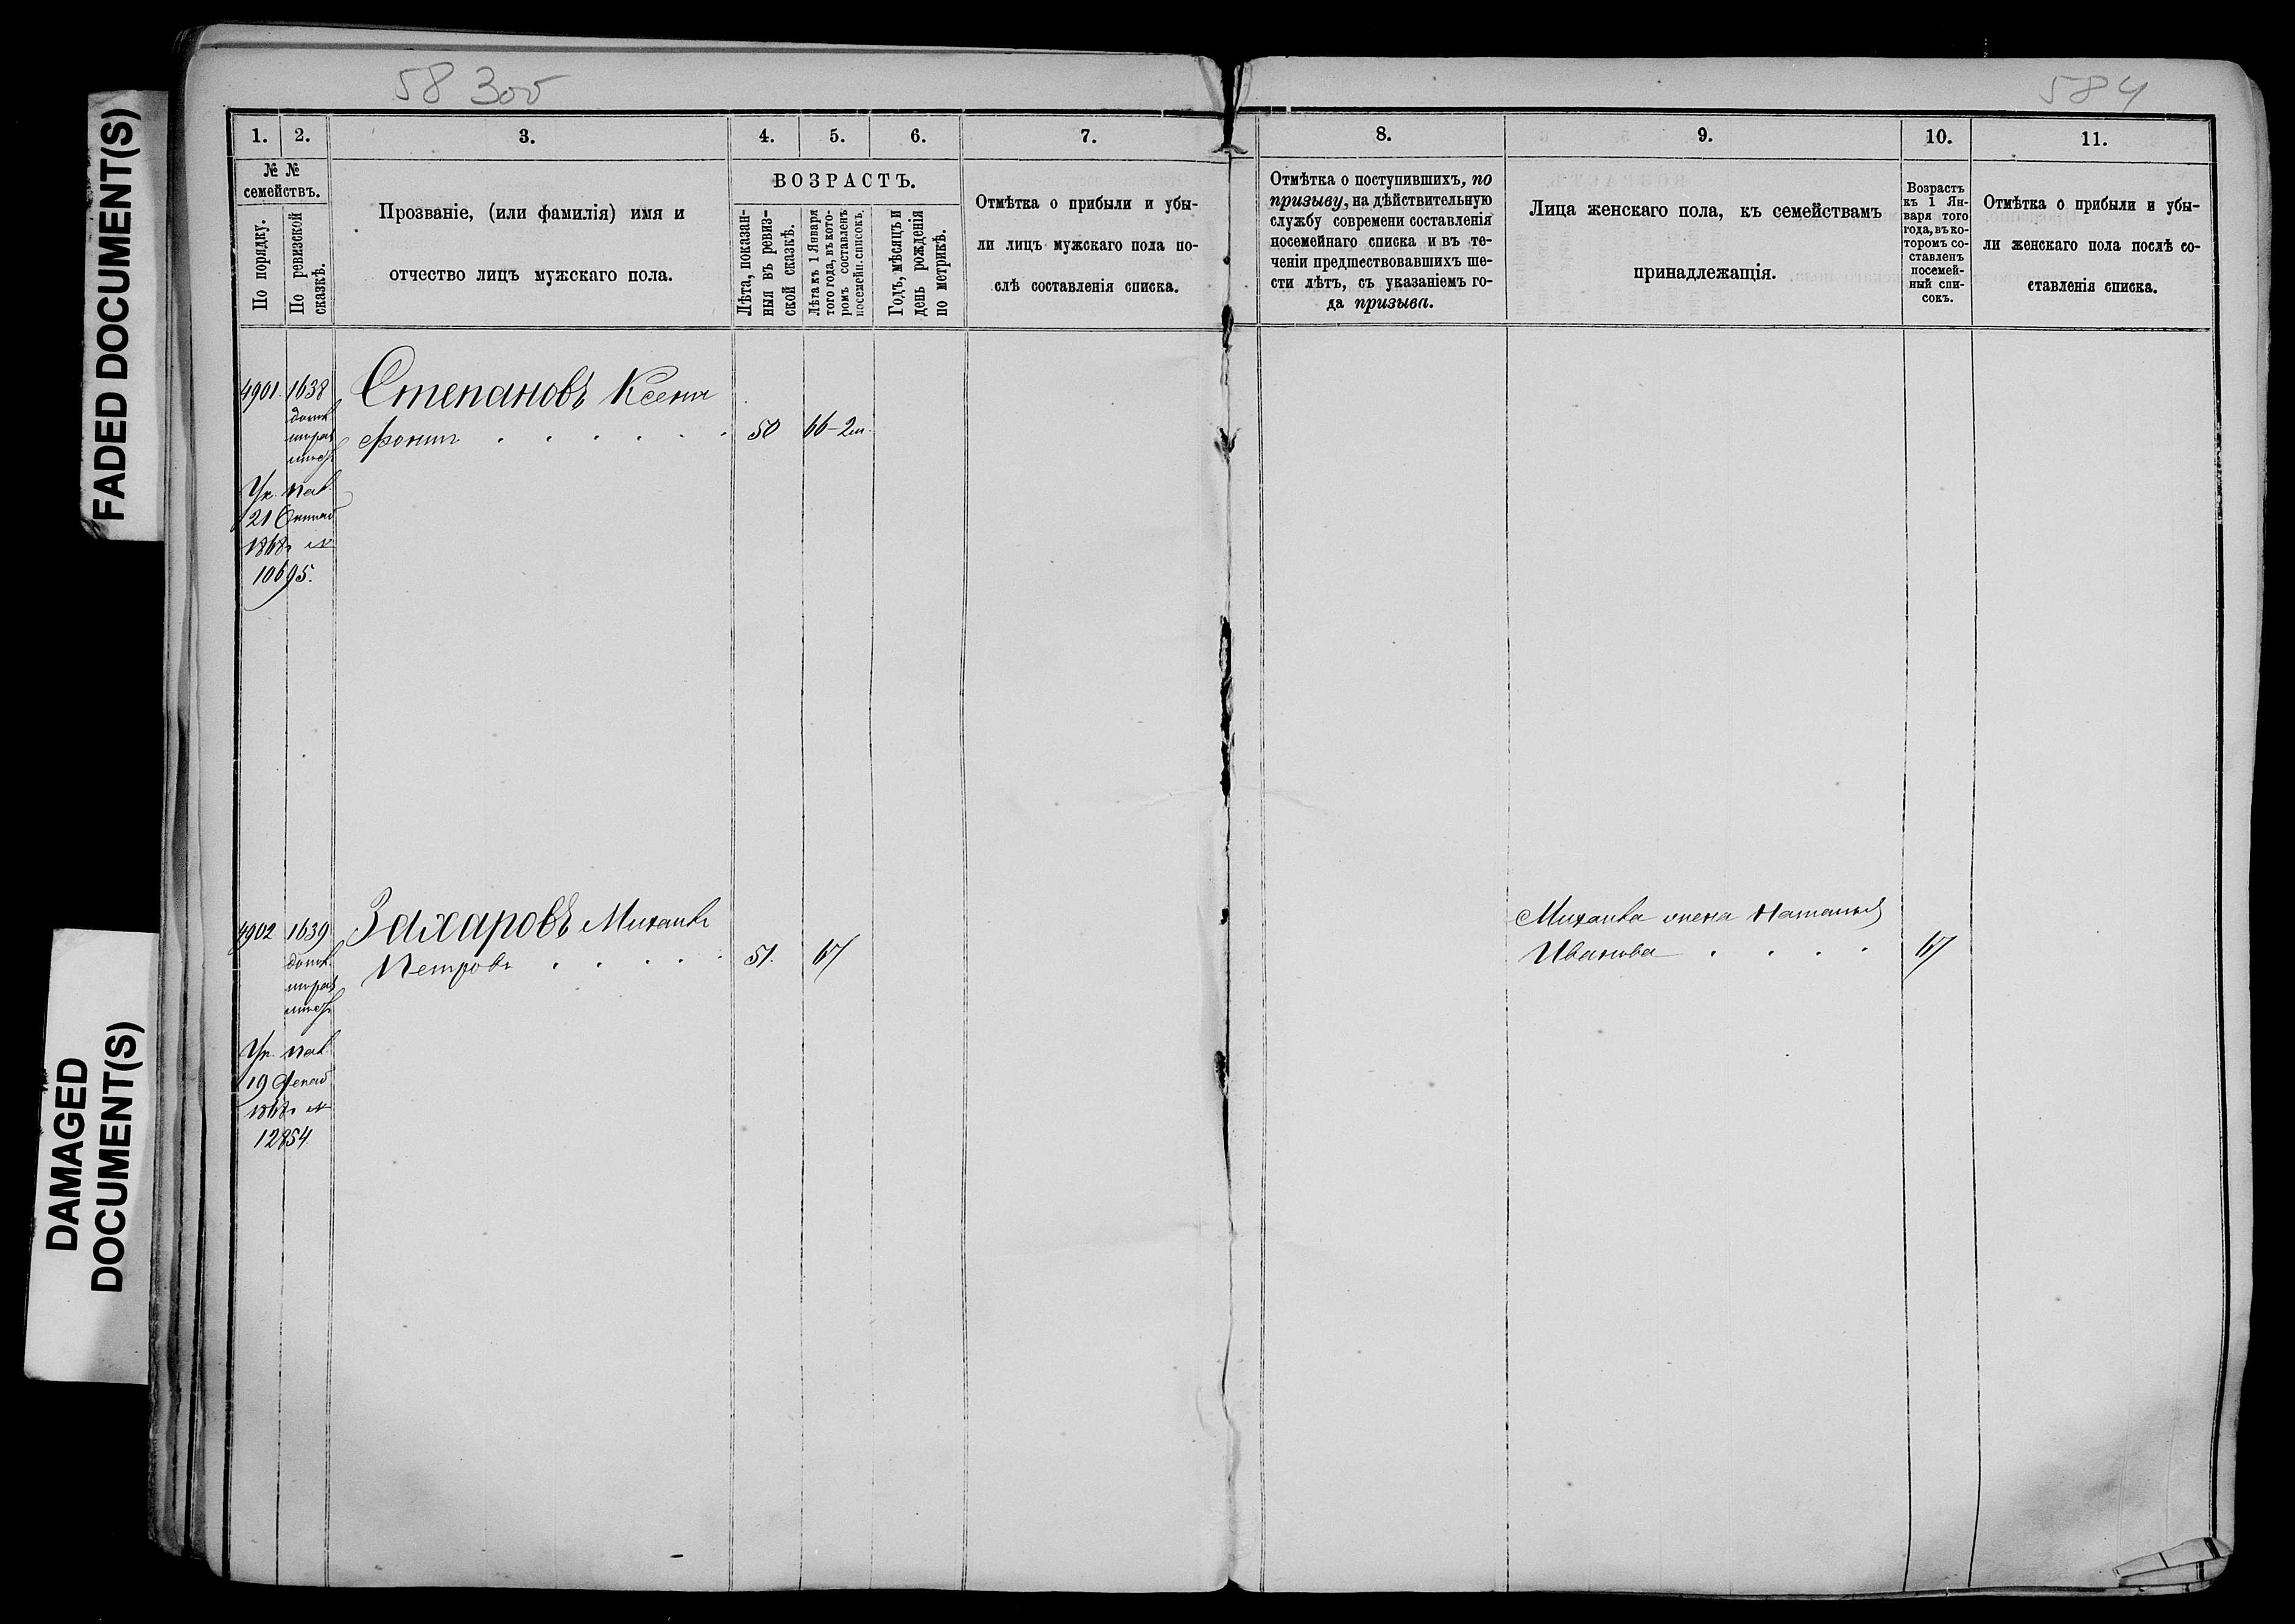 FADED DOCUMENT(S)
DAMAGED
DOCUMENT(S)
58 300
584
1. 2. 3. 4. 5. 6. 7.
№ №
семействъ.
По порядку.
По ревизской
сказкѣ.
Прозваніе, (или фамилія) имя и
отчество лицъ мужскаго пола.
ВОЗРАСТЪ.
Лѣта, показан-
ныя въ ревиз-
ской сказкѣ.
Лѣта къ 1 Января
того года, въ кото-
ромъ составленъ
посемейн. списокъ.
Годъ, мѣсяцъ и
день рожденія
по метрикѣ.
Отмѣтка о прибыли и убы-
ли лицъ мужскаго пола по-
слѣ составленія списка.
8. 9. 10. 11.
Отмѣтка о поступившихъ, по
призыву, на дѣйствительную
службу современи составленія
посемейнаго списка и въ те-
ченіи предшествовавшихъ ше-
сти лѣтъ, съ указаніемъ го-
да призыва.
Лица женскаго пола, къ семействамъ
принадлежащія.
Возрастъ
къ 1 Ян-
варя того
года, въ ко-
торомъ со-
ставленъ
посемей-
ный спи-
сокъ.
Отмѣтка о прибыли и убы-
ли женскаго пола послѣ со-
ставленія списка.
4901 1638 Степановъ Ксено
фонтъ 50 66-2м.
Ук. Пал.
21
1868 №
10695.
4902 1639 Захаровъ Михаилъ
Петровъ 51. 67
Ук. Пал.
19 Декаб
1868 №
12854
Михаила жена Наталья
Иванова 67